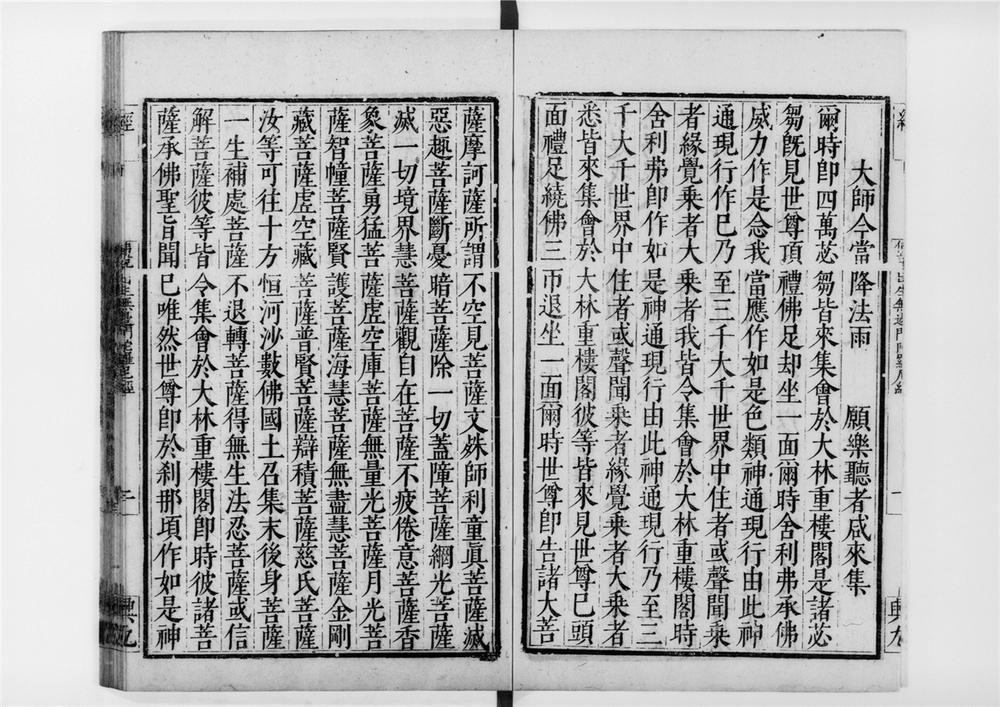 大師今當降法雨　願樂聽者咸來集
爾時即四萬苾芻皆來集會於大林重樓閣是諸苾
芻旣見世尊頂禮佛足却坐一面爾時舍利弗承佛
威力作是念我當應作如是色類神通現行由此神
通現行作已乃至三千大千世界中住者或聲聞乘
者緣覺乘者大乘者我皆令集會於大林重樓閣時
舍利弗即作如是神通現行由此神通現行乃至三
千大千世界中住者或聲聞乘者緣覺乘者大乘者
悉皆來集會於大林重樓閣彼等皆來見世尊已頭
面禮足繞佛三帀退坐一面爾時世尊即告諸大菩
薩摩訶薩所謂不空見菩薩文姝師利童眞菩薩滅
惡趣菩薩斷憂暗菩薩除一切蓋障菩薩網光菩薩
滅一切境界慧菩薩觀自在菩薩不疲倦意菩薩香
象菩薩勇猛菩薩虛空庫菩薩無量光菩薩月光菩
薩智幢菩薩賢護菩薩海慧菩薩無盡慧菩薩金剛
藏菩薩虛空藏菩薩普賢菩薩辯積菩薩慈氏菩薩
汝等可往十方恒河沙數佛國土召集末後身菩薩
一生補處菩薩不退轉菩薩得無生法忍菩薩或信
解菩薩彼等皆令集會於大林重樓閣即時彼諸菩
薩承佛聖旨聞已唯然世尊即於刹那頃作如是神